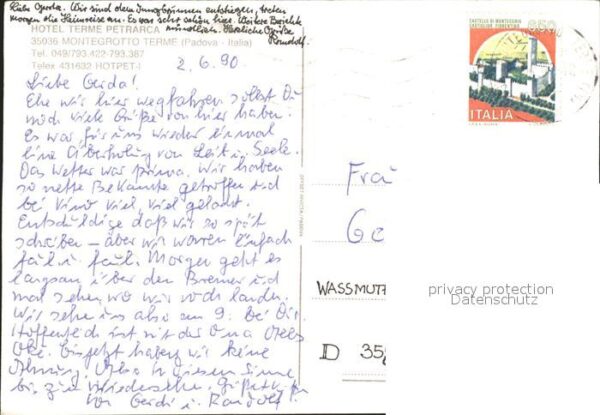 Liebe Gerda. Wir sind dem Jungbrunnen entstiegen, treten
morgen die Heimreise an. Es war sehr schön hier. Weitere Berichte
mündlich. Herzliche Grüße
Randolf.
HOTEL TERME PETRARCA
35036 MONTEGROTTO TERME (Padova - Italia)
Tel. 049/793.422-793.387
Telex 431632 HOTPET-I
2.6.90
Liebe Gerda!
Ehe wir hier wegfahren sollst Du
noch viele Grüße von hier haben.
Es war für uns wieder einmal
eine Erholung von Leib u. Seele.
Das Wetter war prima. Wir haben
so nette Bekannte getroffen und
bei Vino viel, viel gelacht.
Entschuldige daß wir so spät
schreiben – aber wir waren einfach
faul u. faul. Morgen geht es
langsam über den Brenner und
mal sehen wo wir noch landen.
Wir sehen uns also am 9. bei Dir.
Hoffentlich ist mit der Oma alles
Oke. bis jetzt haben wir keine
Ahnung. Also in diesem Sinne
bis zum Wiedersehen. Grüße
von Gerdi u. Randolf.
CASTELLO DI MONTECCHIO
CASTIGLION FIORENTINO
650
ITALIA
Frau
Ge
WASSMUTH
D 356
privacy protection
Datenschutz